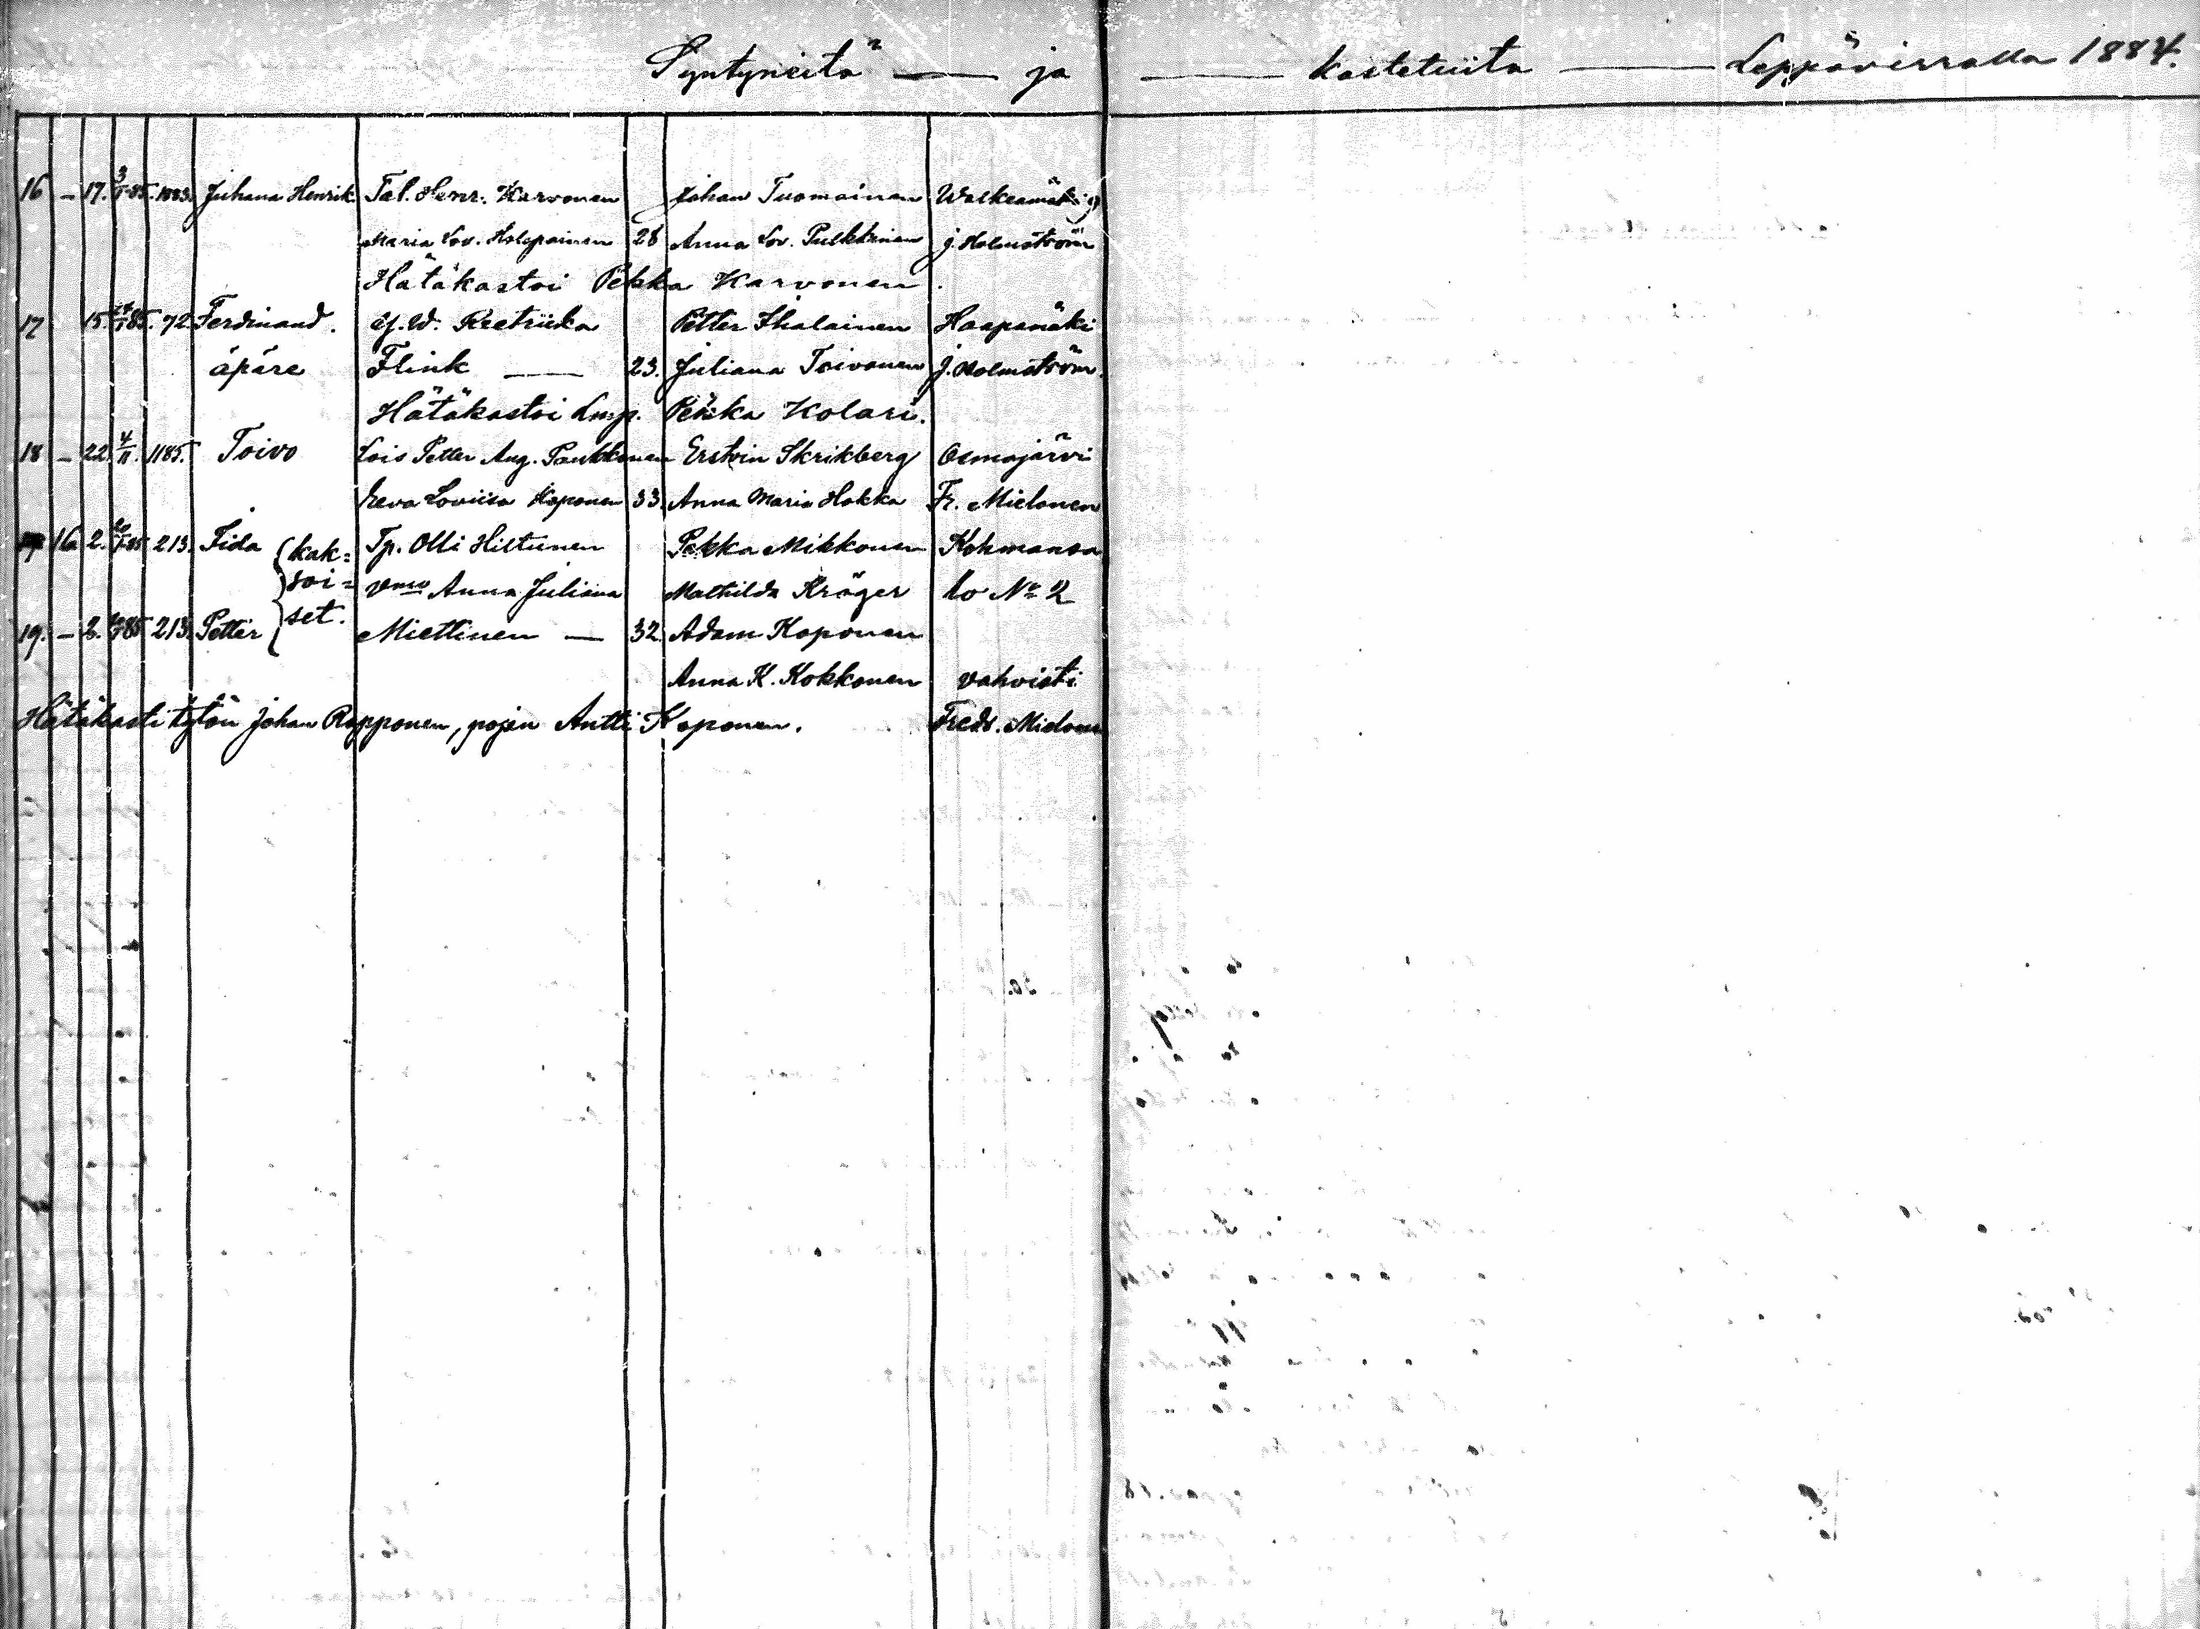 Syntyneitä — ja — kastetuita — Leppävirralla 1884.
16 – 17. 3/1 85. 1083. Juhana Henrik Tal. Henr. Karvonen Johan Tuomainen Walkeamäki
Maria Lov. Holopainen 28 Anna Lov. Pulkkinen J. Holmström
Hätäkastoi Pekka Karvonen.
17 15. 85. 72 Ferdinand. Reetriika Petter Ihalainen Haapamäki
äpäre Flink — 23. Juliana Toivonen J. Holmström.
Hätäkastoi Lmp. Pekka Kolari.
18 – 22. 4/11. 1185. Toivo Lois Petter Aug. Paukkonen Erstvin Skrikberg Osmajärvi
Eeva Loviisa Koponen 33. Anna Maria Hokka Fr. Mielonen
16 2. 85 213. Fida { kak= Tp. Olli Hiltunen Pekka Mikkonen Kohmansa
soi= vmo Anna Juliana Mathilda Kröger lo No 2
19. – 2. 85 213. Petter set. Miettinen — 32. Adam Koponen
Anna K. Kokkonen vahvisti
Hätäkasti tytön Johan Ropponen, pojan Antti Koponen. Fredr. Mielonen